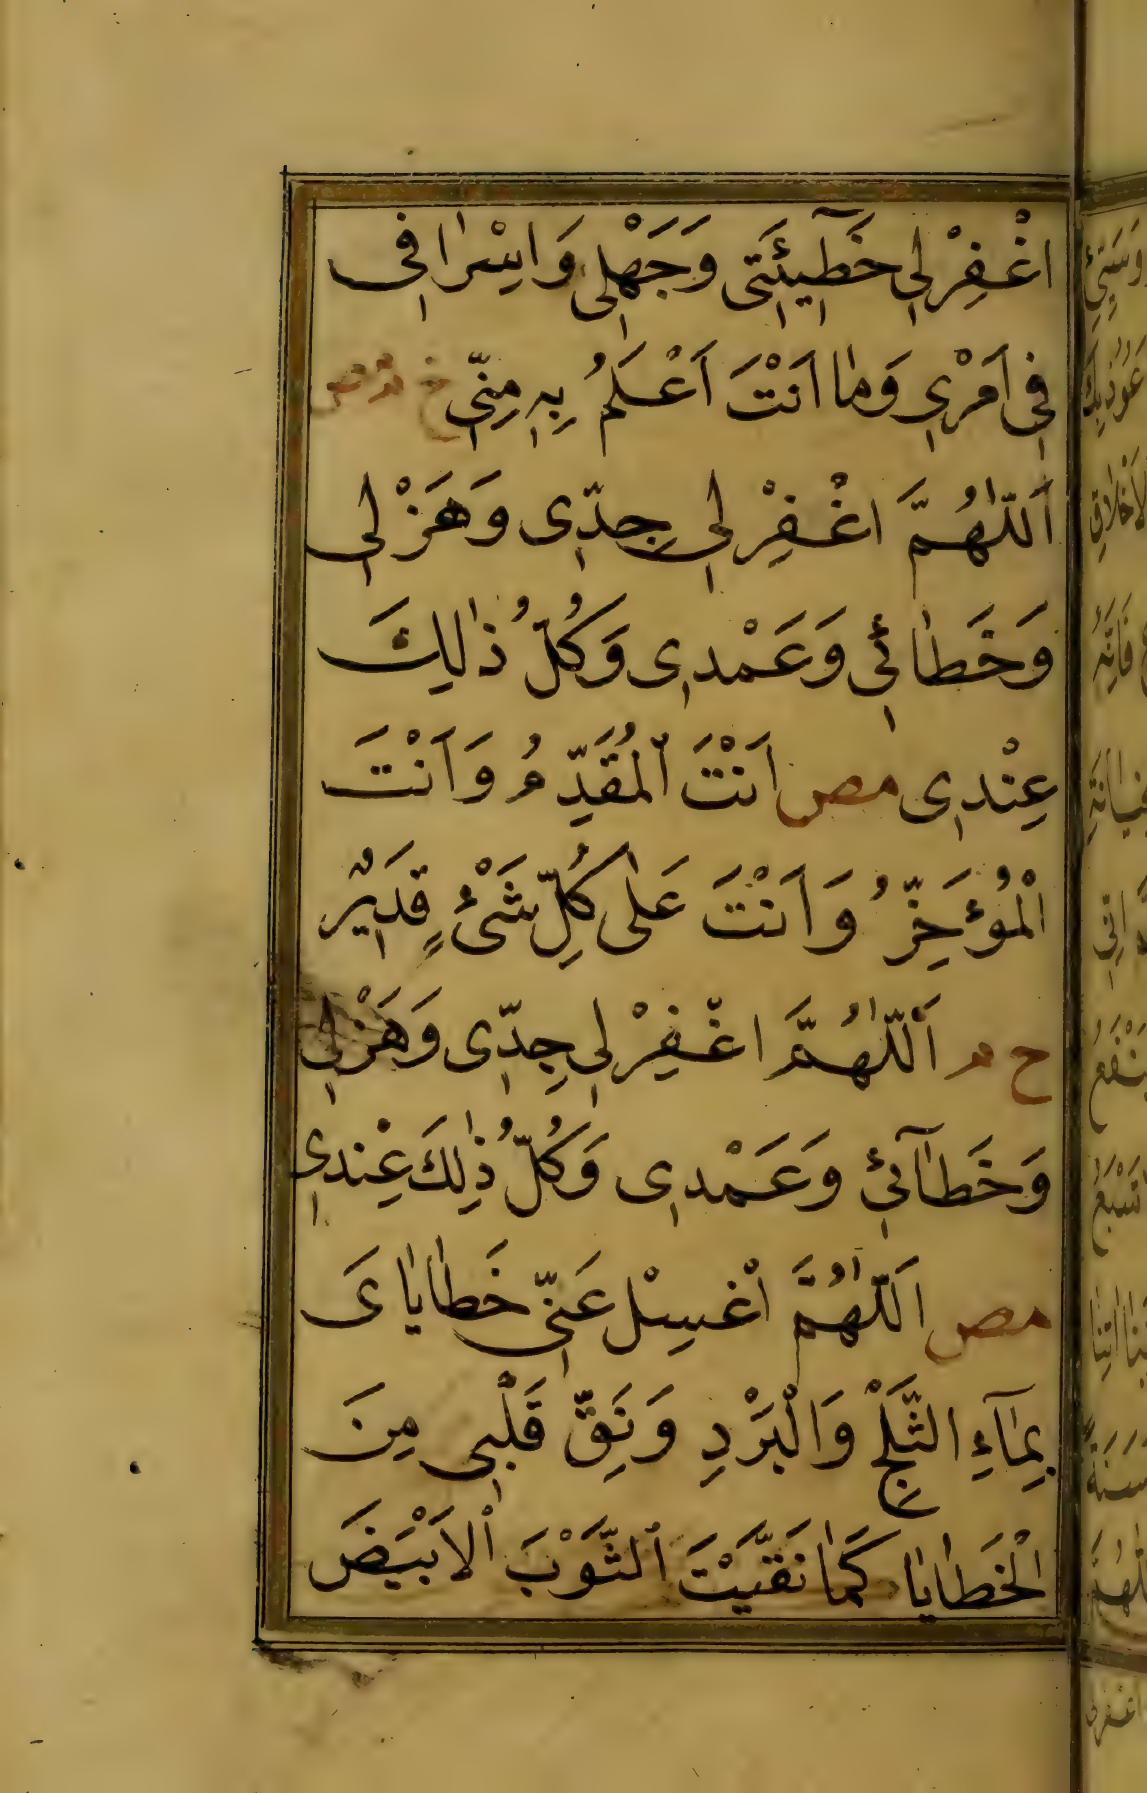 اغْفِرْ لِي خَطٓيئَتِي وَجَهْلِي وَاِسْرَافِي
فِي اَمْرِي وَمَا اَنْتَ اَعْلَمُ بِهِ مِنِّي خ
اَللّٰهُمَّ اغْفِرْ لِي جِدِّي وَهَزْلِي
وَخَطَائِي وَعَمْدِي وَكُلُّ ذٰالِكَ
عِنْدِي مص اَنْتَ الْمُقَدِّمُ وَاَنْتَ
الْمُؤَخِّرُ وَاَنْتَ عَلٰى كُلِّ شَيْءٍ قَدِيْرٌ
ح م اَللّٰهُمَّ اغْفِرْ لِي جِدِّي وَهَزْلِي
وَخَطَآئِي وَعَمْدِي وَكُلُّ ذٰلِكَ عِنْدِي
مص اَللّٰهُمَّ اغْسِلْ عَنِّي خَطَايَايَ
بِمَآءِ الثَّلْجِ وَالْبَرْدِ وَنَقِّ قَلْبِي مِنَ
الْخَطَايَا كَمَا نَقَّيْتَ الثَّوْبَ الْاَبْيَضَ